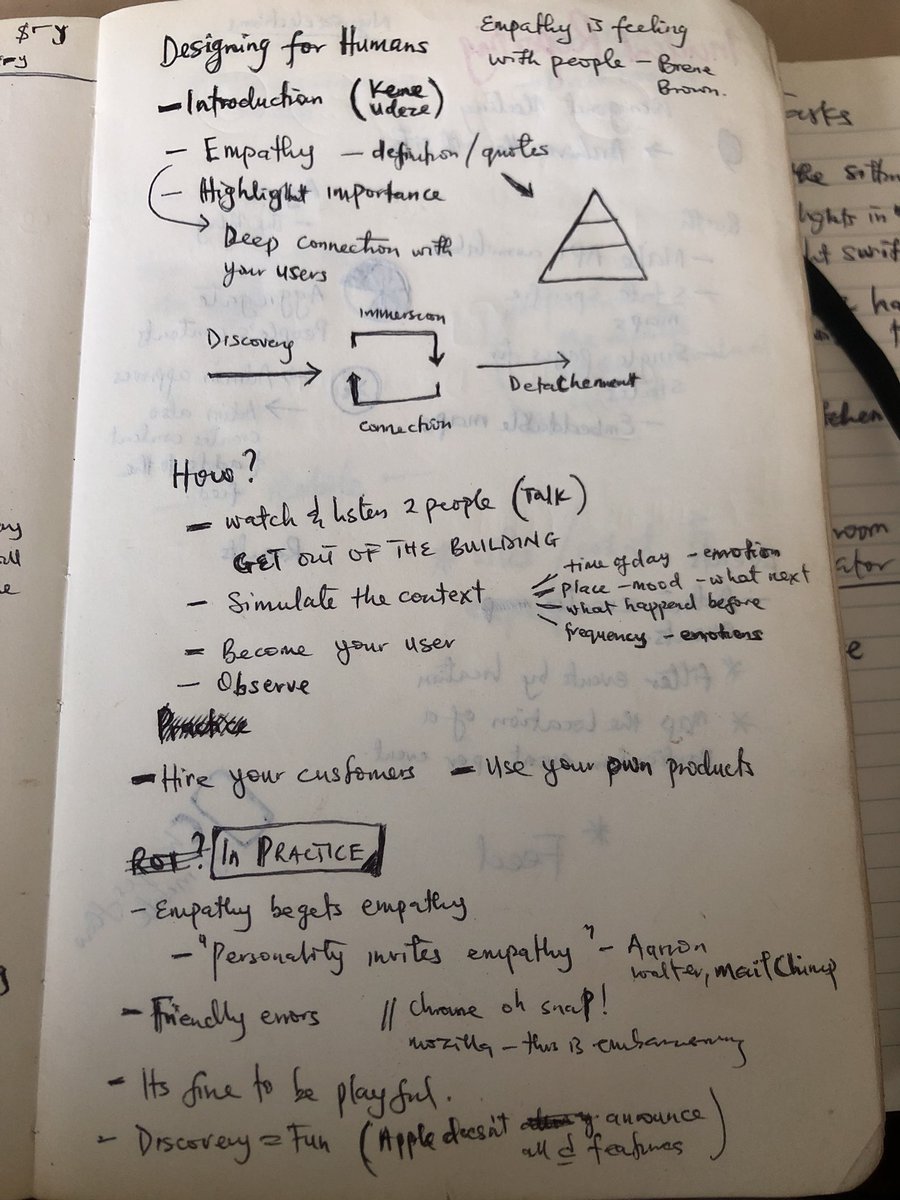 Designing for Humans
Empathy is feeling
with people - Brene
Brown.
- Introduction (Keme
Udeze)
- Empathy - definition/quotes
- Highlight importance
Deep connection with
your users
Discovery
immersion
connection
Detachement
How?
- watch & listen 2 people (Talk)
GET OUT OF THE BUILDING
- Simulate the context
time of day - emotion
place - mood - what next
what happend before
frequency - emotions
- Become your user
- Observe
Practice
- Hire your customers - Use your own products
ROI? IN PRACTICE
- Empathy begets empathy
- "Personality invites empathy" - Aarron
walter, MailChimp
- Friendly errors // chrome oh snap!
mozilla - this is embarrassing
- Its fine to be playful.
- Discovery = Fun (Apple doesn't announce
all d features)
asks
the
lights in
room